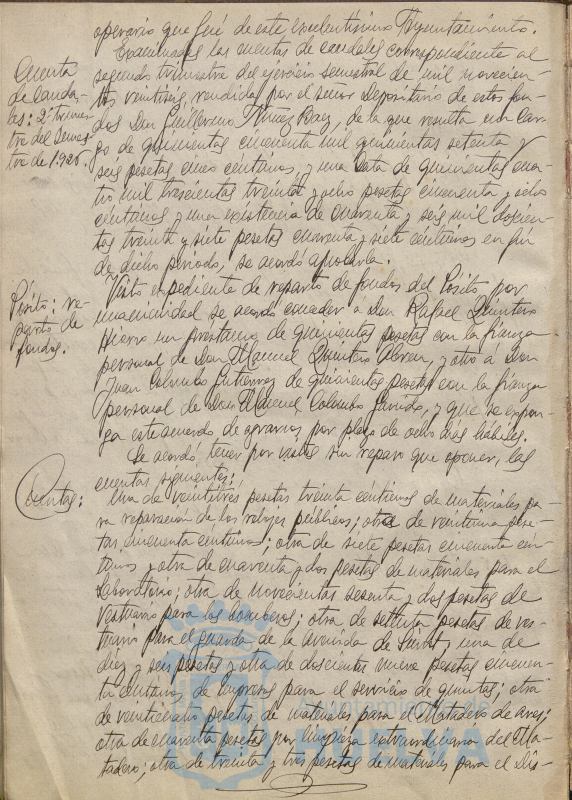 operario que fué de este Excelentisimo Ayuntamiento.
Examinadas las cuentas de caudales correspondiente al
segundo trimestre del ejercicio semestral de mil novecien-
tos veintiseis, rendidas por el señor Depositario de estos fon-
dos Don Guillermo Báez, de la que resulta un car-
go de quinientas cincuenta mil quinientas setenta y
seis pesetas cinco centimos, y una data de quinientas cua-
tro mil trescientas treinta y ocho pesetas cincuenta y ocho
centimos y una existencia de cuarenta y seis mil doscien-
tas treinta y siete pesetas cuarenta y siete centimos en fin
de dicho periodo, se acordó aprobarla.
Cuenta
de Cauda-
les: 2º trimes-
tre del semes-
tre de 1926.
Visto expediente de reparto de fondos del Pósito por
unanimidad se acordó conceder á Don Rafael Quintero
Hierro un prestamo de quinientas pesetas con la fianza
personal de Don Manuel Quintero Abreu, y otro á Don
Juan Colombo Gutierrez de quinientas pesetas con la fianza
personal de Don Manuel Colombo Garrido, y que se expon-
ga este acuerdo de agravios por plazo de ocho dias hábiles.
Pósito: re-
parto de
fondos.
Se acordó tener por vistas sin reparo que oponer, las
cuentas siguientes:
Cuentas:
Una de veintitres pesetas treinta centimos de materiales pa-
ra reparación de los relojes públicos; otra de veintiuna pese-
tas cincuenta centimos; otra de siete pesetas cincuenta cen-
timos y otra de cuarenta y dos pesetas de materiales para el
Laboratorio; otra de novecientas sesenta y dos pesetas de
vestuario para los bomberos; otra de setenta pesetas de ves-
tuario para el guarda de la avenida de; una de
diez y seis pesetas y otra de doscientas nueve pesetas cincuen-
ta centimos de impresos para el servicio de quintas; otra
de veinticinco pesetas de materiales para el Matadero de aves;
otra de cuarenta pesetas por limpieza extraordinaria del Ma-
tadero; otra de treinta y tres pesetas de materiales para el
Ayuntamiento de
HUELVA